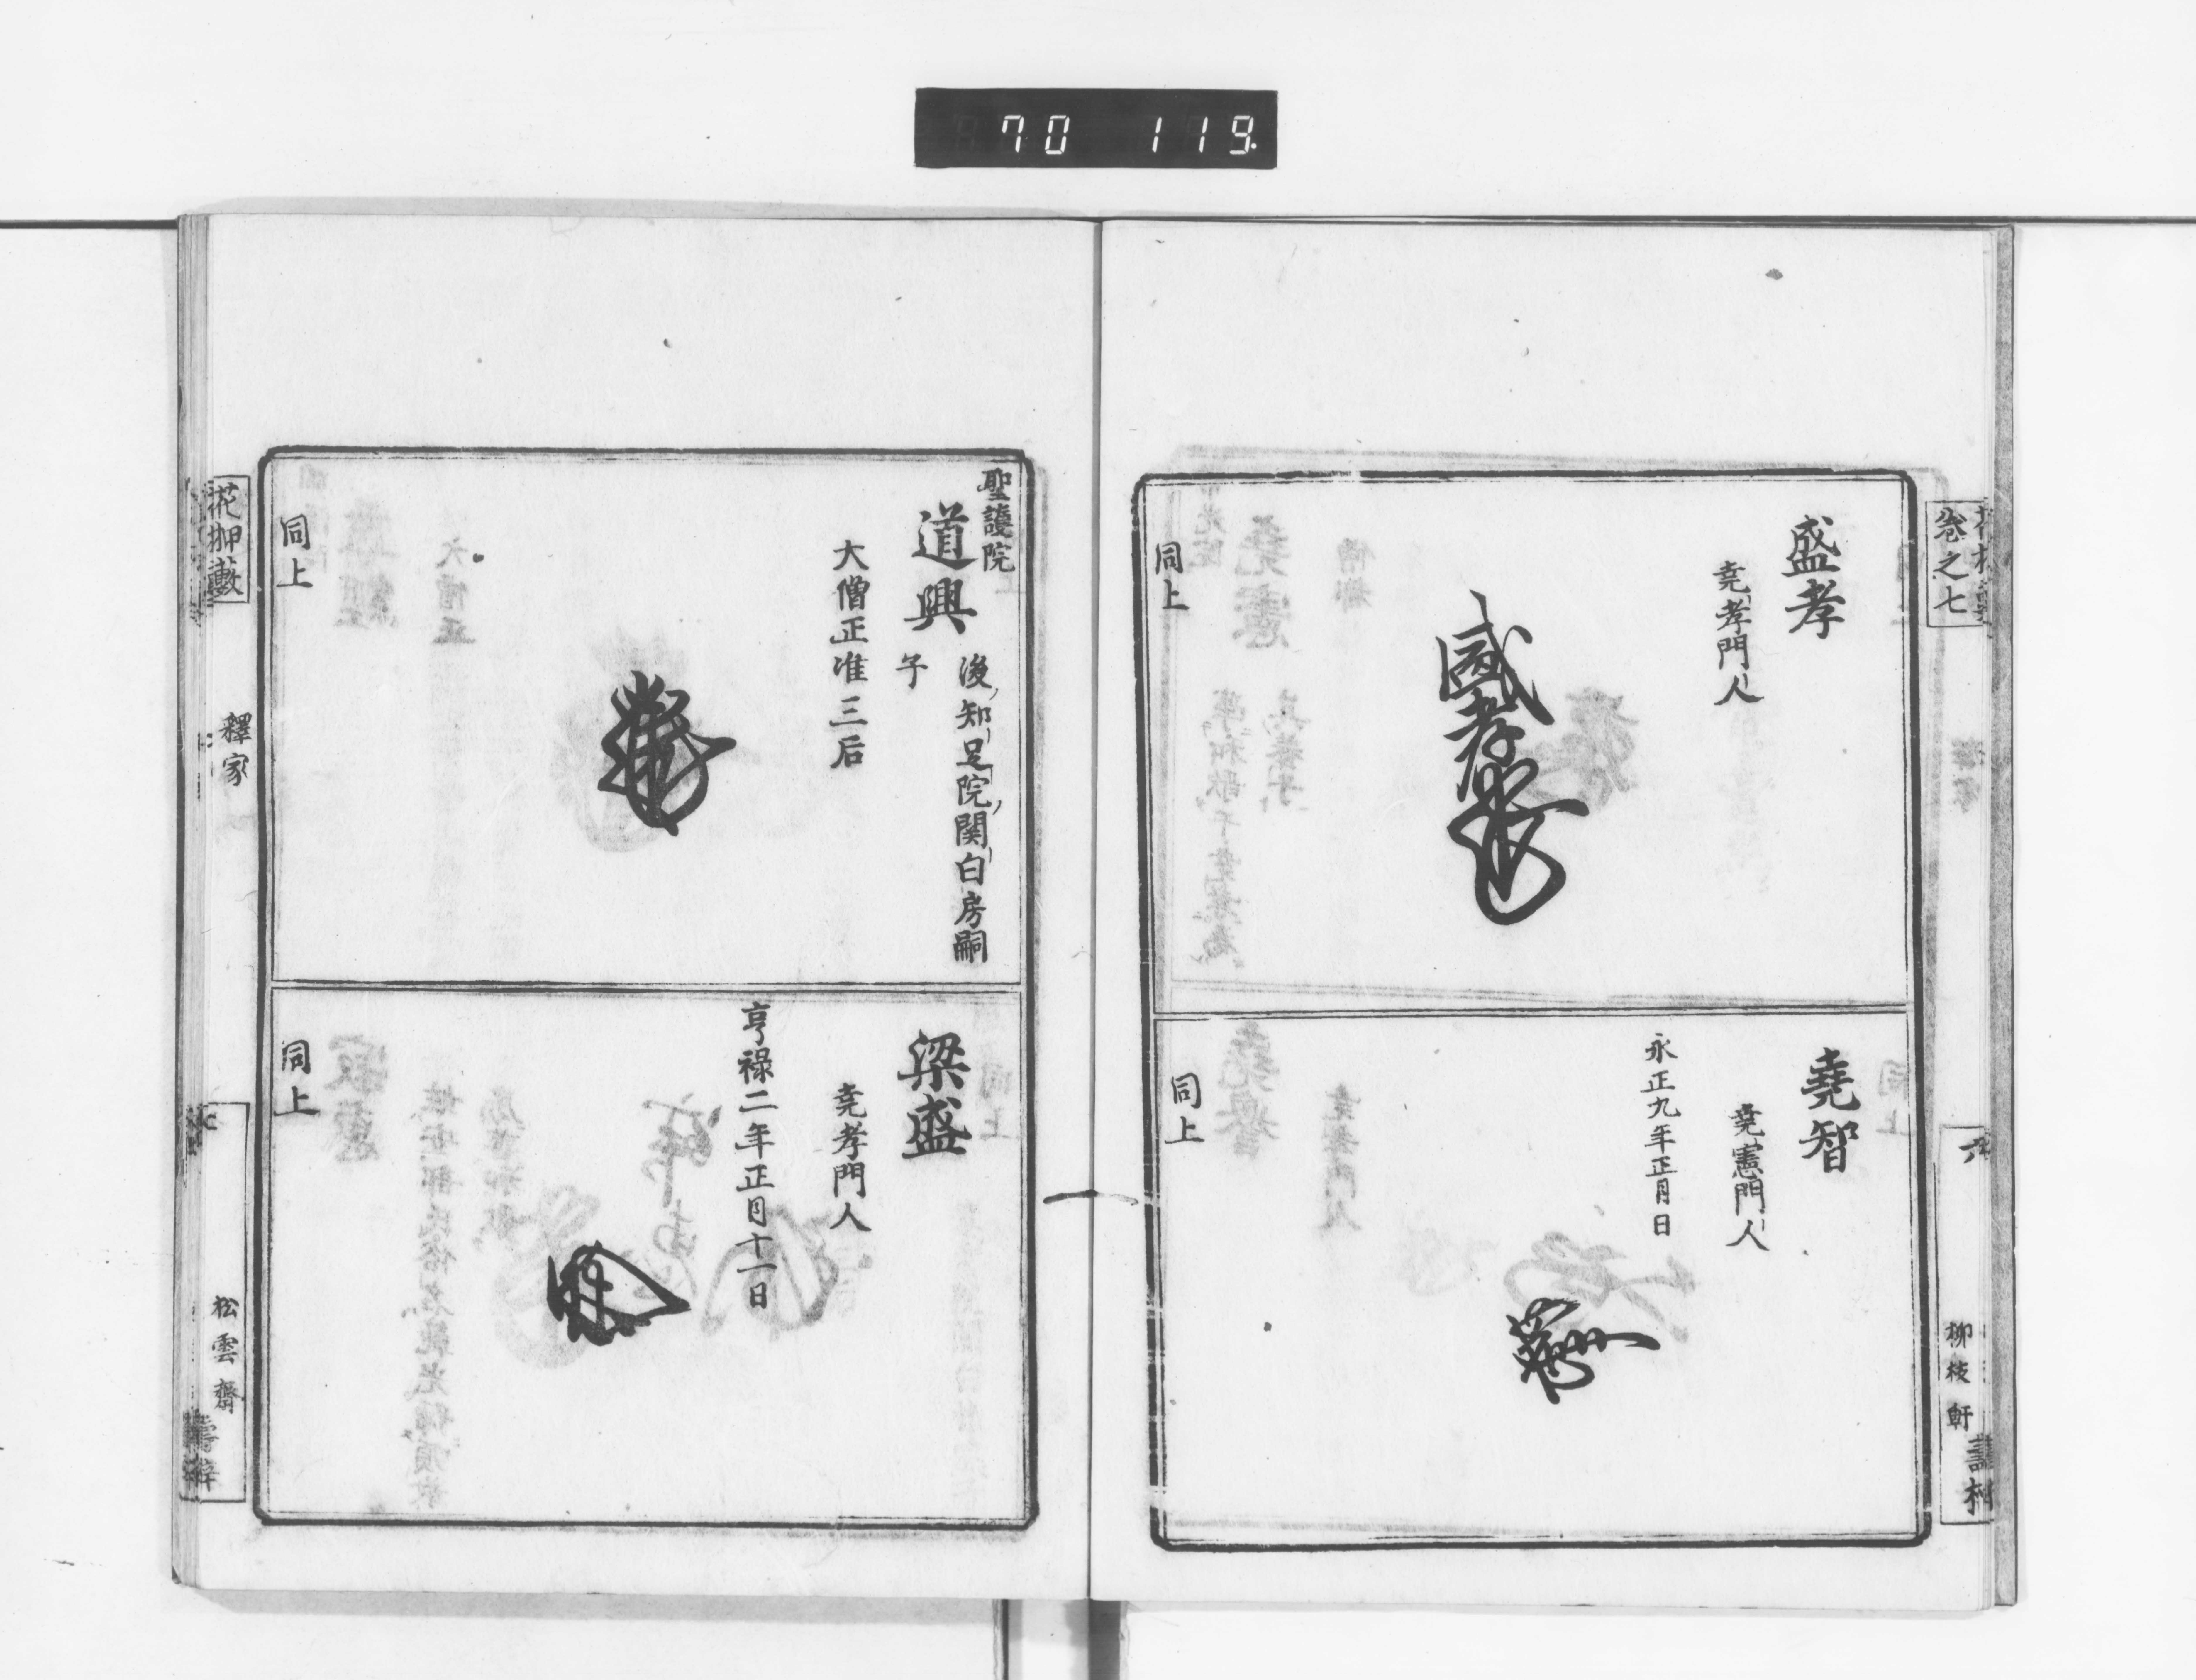 70 119.
巻之七
六
柳枝軒
盛孝
堯孝門人
盛孝
同上
堯智
堯憲門人
永正九年正月日
同上
聖護院
道興
後知足院関白房嗣
子
大僧正准三后
同上
梁盛
堯孝門人
亨禄二年正月十一日
同上
花押藪
釋家
七
松雲齋